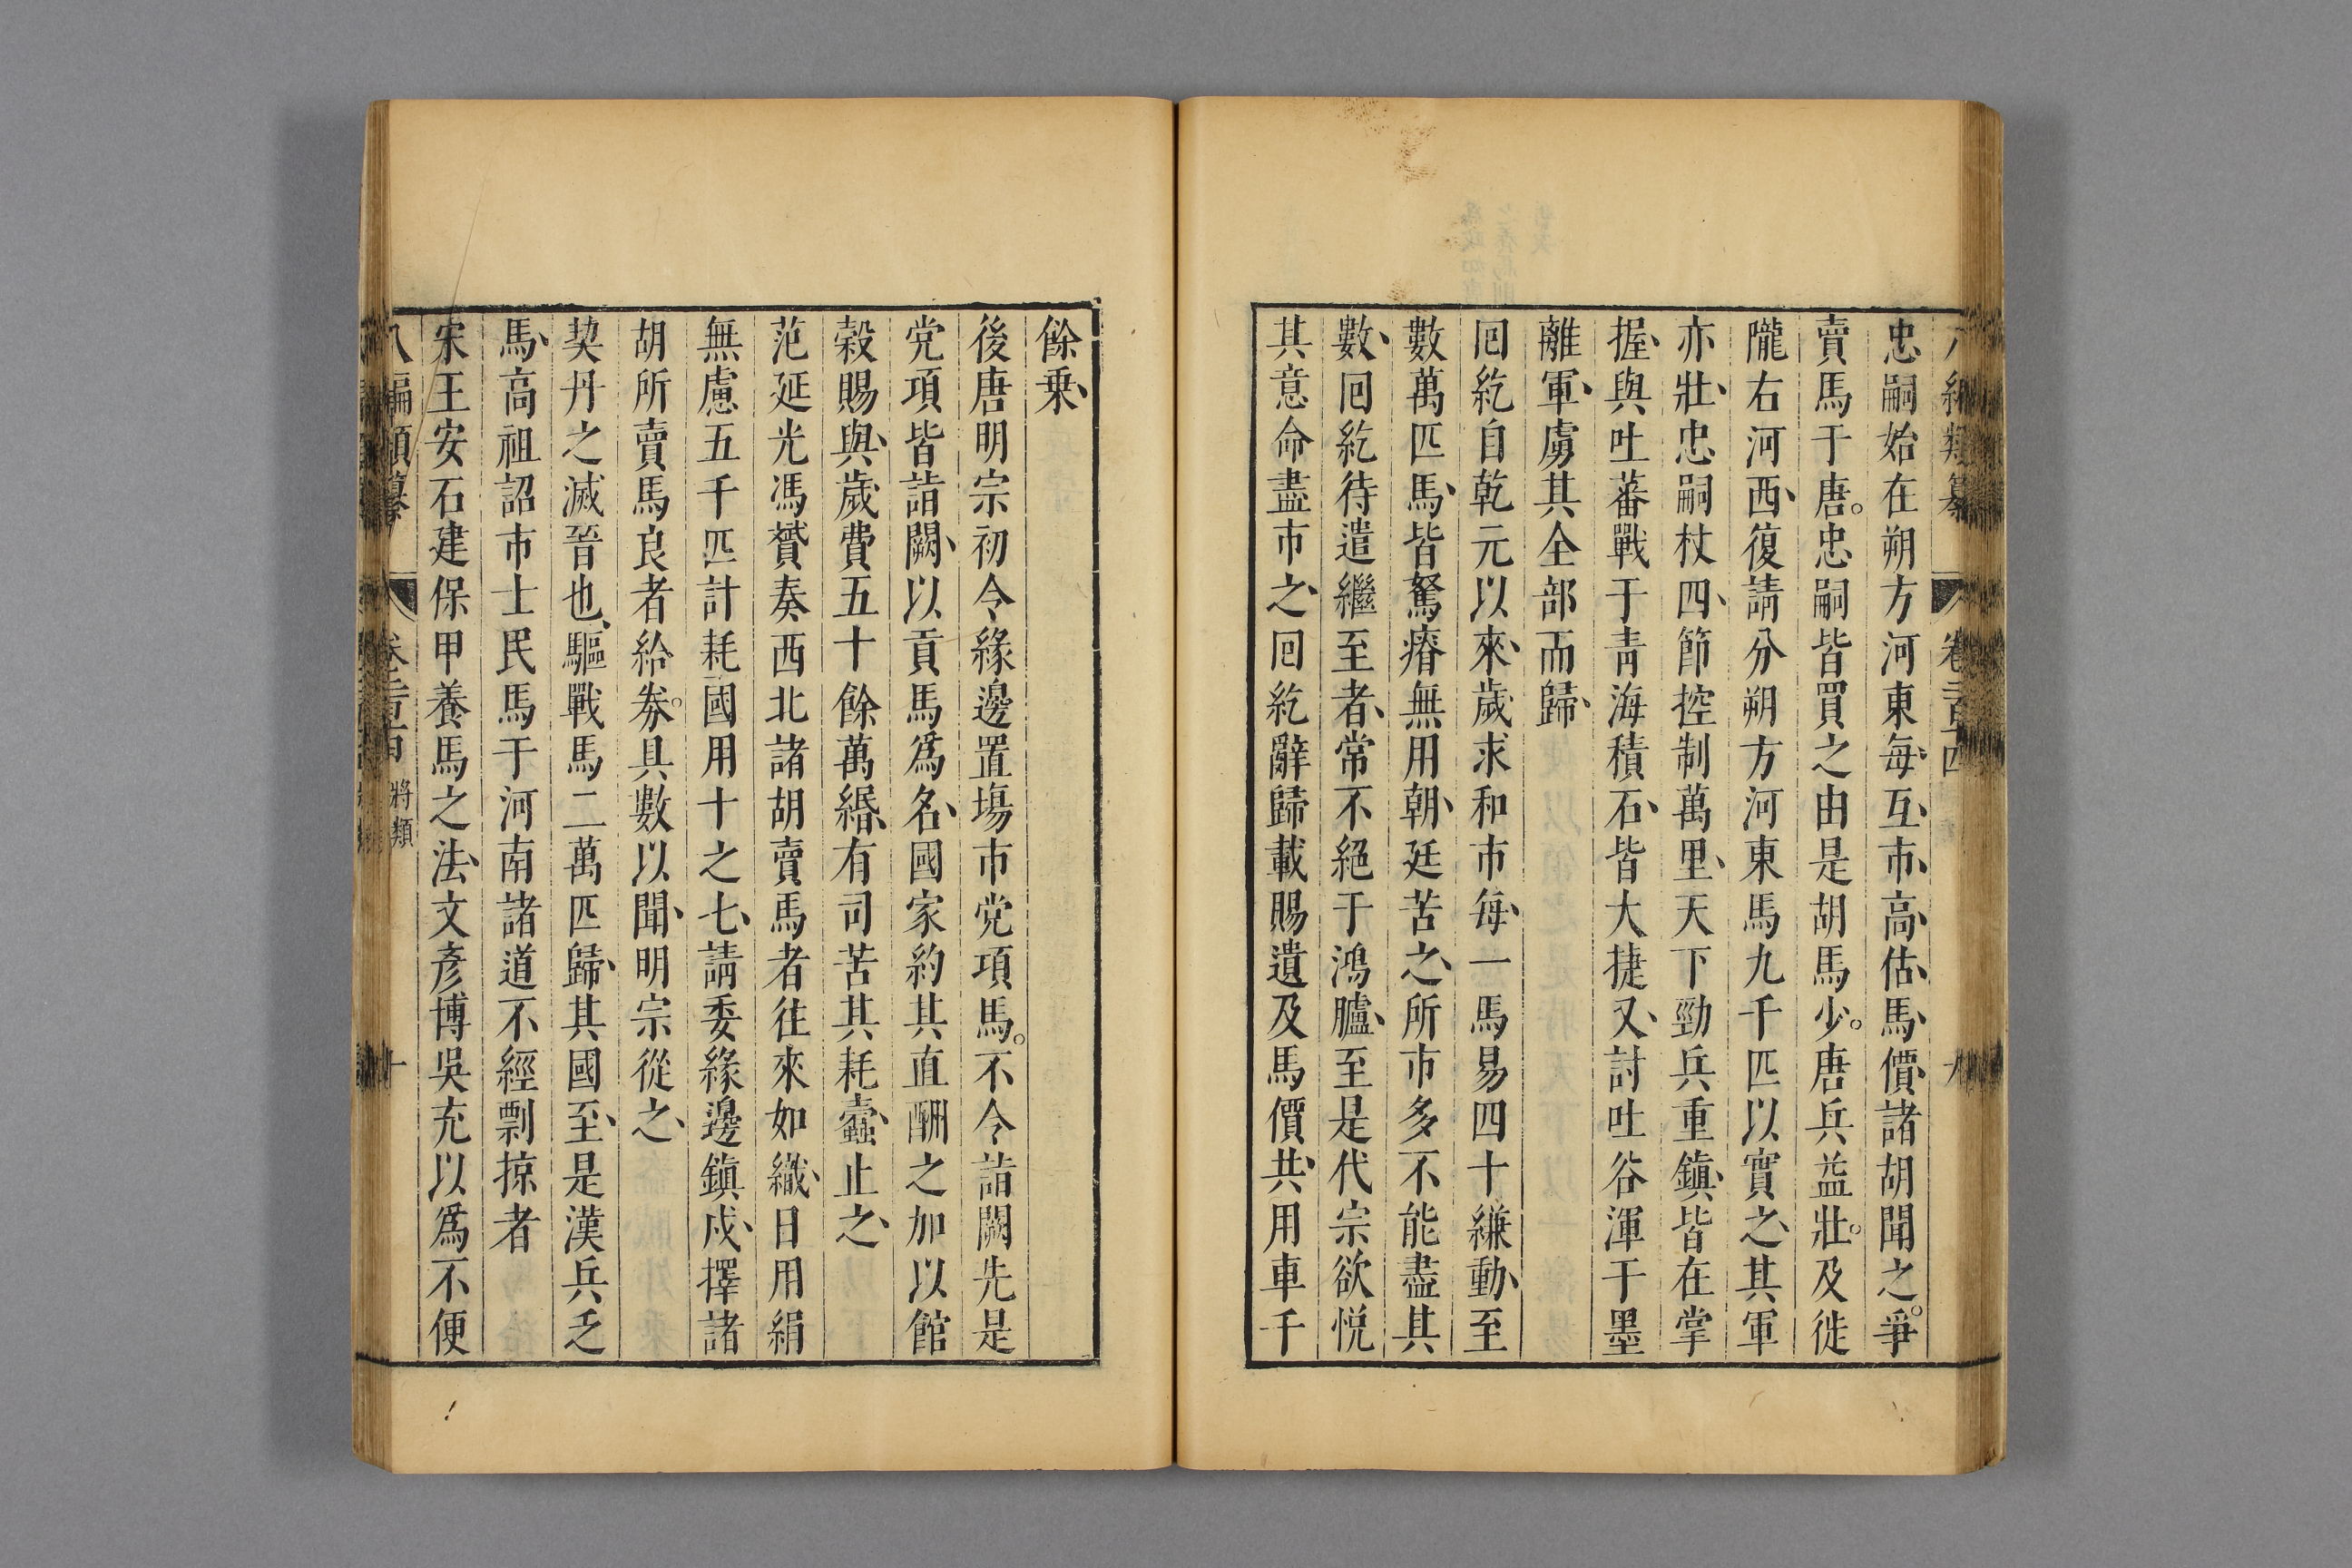 忠嗣始在朔方河東每互市高估馬價諸胡聞之爭
賣馬于唐忠嗣皆買之由是胡馬少唐兵益壯及徙
隴右河西復請分朔方河東馬九千匹以實之其軍
亦壯忠嗣杖四節控制萬里天下勁兵重鎮皆在掌
握與吐蕃戰于青海積石皆大捷又討吐谷渾于墨
離軍虜其全部而歸
回紇自乾元以來歲求和市每一馬易四十縑動至
數萬匹馬皆駑瘠無用朝廷苦之所市多不能盡其
數回紇待遣繼至者常不絕于鴻臚至是代宗欲悅
其意命盡市之回紇辭歸載賜遺及馬價共用車千
餘乗
後唐明宗初令緣邊置場市党項馬不令詣闕先是
党項皆詣闕以貢馬爲名國家約其直酬之加以館
穀賜與歲費五十餘萬緡有司苦其耗蠧止之
范延光馮贇奏西北諸胡賣馬者往來如織日用絹
無慮五千匹計耗國用十之七請委緣邊鎮戍擇諸
胡所賣馬良者給券具數以聞明宗從之
契丹之滅晉也驅戰馬二萬匹歸其國至是漢兵乏
馬高祖詔市士民馬于河南諸道不經剽掠者
宋王安石建保甲養馬之法文彥博吳充以爲不便
八編類纂
將類
十